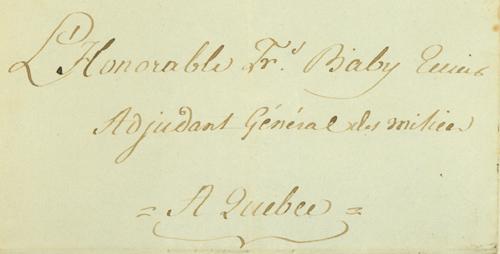 L'Honorable Frs Baby Ecuier
Adjudant Général des milices
= A Quebec =